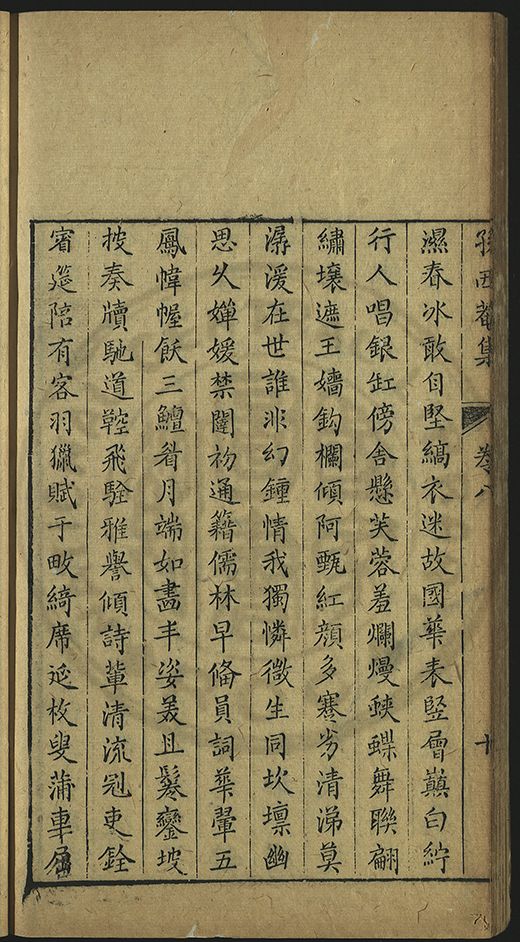 孫西菴集 卷八 十
濕春冰敢自堅縞衣迷故國華表豎層巔白紵
行人唱銀缸傍舍懸芙蓉羞爛熳蛺蝶舞聯翩
繡壤遮王嬙鈎欄傾阿甄紅顏多蹇劣清涕莫
潺湲在世誰非幻鍾情我獨憐微生同坎壈幽
思乆嬋媛禁闥初通籍儒林早俻員詞華翬五
鳳幃幄飫三鱣眉月端如畵丰姿羙且鬈鑾坡
披奏牘馳道鞚飛駩雅譽傾詩軰清流冠吏銓
賓筵陪有客羽獵賦于畋綺席延枚叟蒲車屈